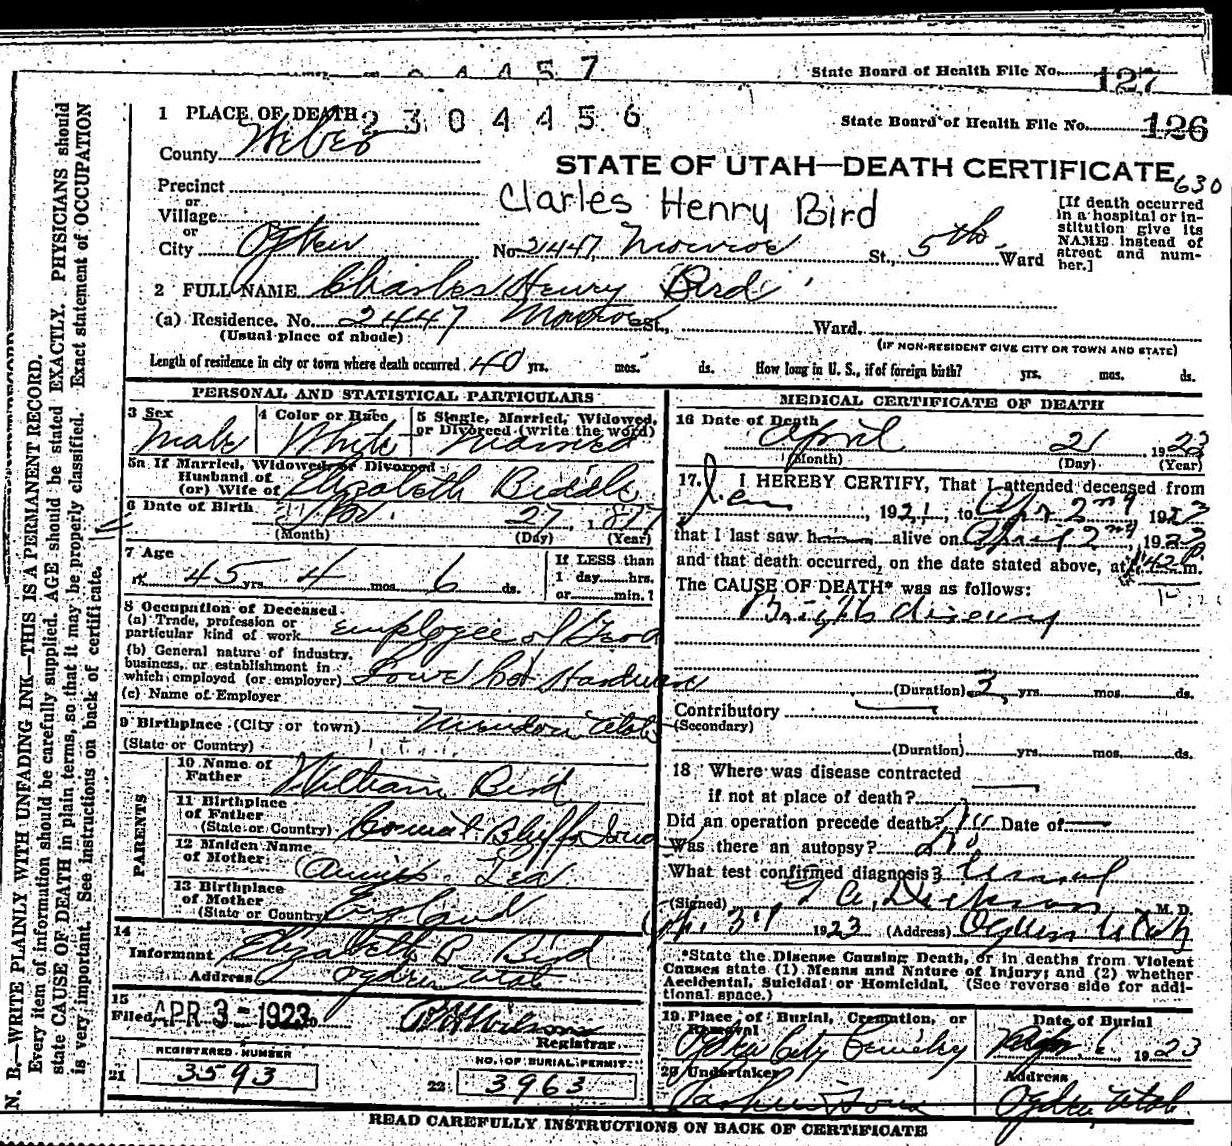 4 4 5 7
State Board of Health File No. 127
2 3 0 4 4 5 6
State Board of Health File No. 126
STATE OF UTAH—DEATH CERTIFICATE
630
Clarles Henry Bird
1 PLACE OF DEATH
County Weber
Precinct
or
Village
or
City Ogden No. 2447 Monroe St., 5th Ward
[If death occurred
in a hospital or in-
stitution give its
NAME instead of
street and num-
ber.]
2 FULL NAME Charles Henry Bird
(a) Residence. No. 2447 Monroe St., Ward.
(Usual place of abode)
(IF NON-RESIDENT GIVE CITY OR TOWN AND STATE)
Length of residence in city or town where death occurred 40 yrs. mos. ds. How long in U. S., if of foreign birth? yrs. mos. ds.
PERSONAL AND STATISTICAL PARTICULARS
3 Sex
Male
4 Color or Race
White
5 Single, Married, Widowed,
or Divorced (write the word)
Married
5a If Married, Widowed, or Divorced
Husband of
(or) Wife of Elizabeth Biddle
6 Date of Birth Nov. 27, 1877
(Month) (Day) (Year)
7 Age
45 yrs. 4 mos. 6 ds.
If LESS than
1 day....hrs.
or....min.?
8 Occupation of Deceased
(a) Trade, profession or
particular kind of work employee of Geo a
(b) General nature of industry,
business, or establishment in
which employed (or employer) Lowe Co Hardware
(c) Name of Employer
9 Birthplace (City or town) Mendon Utah
(State or Country)
PARENTS
10 Name of
Father William Bird
11 Birthplace
of Father
(State or Country) Council Bluffs Iowa
12 Maiden Name
of Mother
13 Birthplace
of Mother
(State or Country) England
14
Informant Elizabeth B Bird
Address Ogden Utah
15
Filed APR 3-1923
Wilson
Registrar.
REGISTERED NUMBER
21 3593
NO. OF BURIAL PERMIT
22 3963
MEDICAL CERTIFICATE OF DEATH
16 Date of Death
April 2 1923
(Month) (Day) (Year)
17. I HEREBY CERTIFY, That I attended deceased from
Jan, 1921, to Apr 2nd 1923
that I last saw h alive on April 2nd, 1923
and that death occurred, on the date stated above, at m.
The CAUSE OF DEATH* was as follows:
Brights disease
(Duration) 3 yrs. mos. ds.
Contributory
(Secondary)
(Duration) yrs. mos. ds.
18 Where was disease contracted
if not at place of death?
Did an operation precede death? No Date of
Was there an autopsy? No
What test confirmed diagnosis? Usual
(Signed) Dickson M. D.
Ap. 3 1923 (Address) Ogden Utah
*State the Disease Causing Death, or in deaths from Violent
Causes state (1) Means and Nature of Injury; and (2) whether
Accidental, Suicidal or Homicidal. (See reverse side for addi-
tional space.)
19 Place of Burial, Cremation, or
Removal
Ogden City Cemetery
Date of Burial
1923
20 Undertaker
Address
Ogden, Utah
READ CAREFULLY INSTRUCTIONS ON BACK OF CERTIFICATE
N. B.—WRITE PLAINLY WITH UNFADING INK—THIS IS A PERMANENT RECORD.
Every item of information should be carefully supplied. AGE should be stated EXACTLY. PHYSICIANS should
state CAUSE OF DEATH in plain terms, so that it may be properly classified. Exact statement of OCCUPATION
is very important. See instructions on back of certificate.